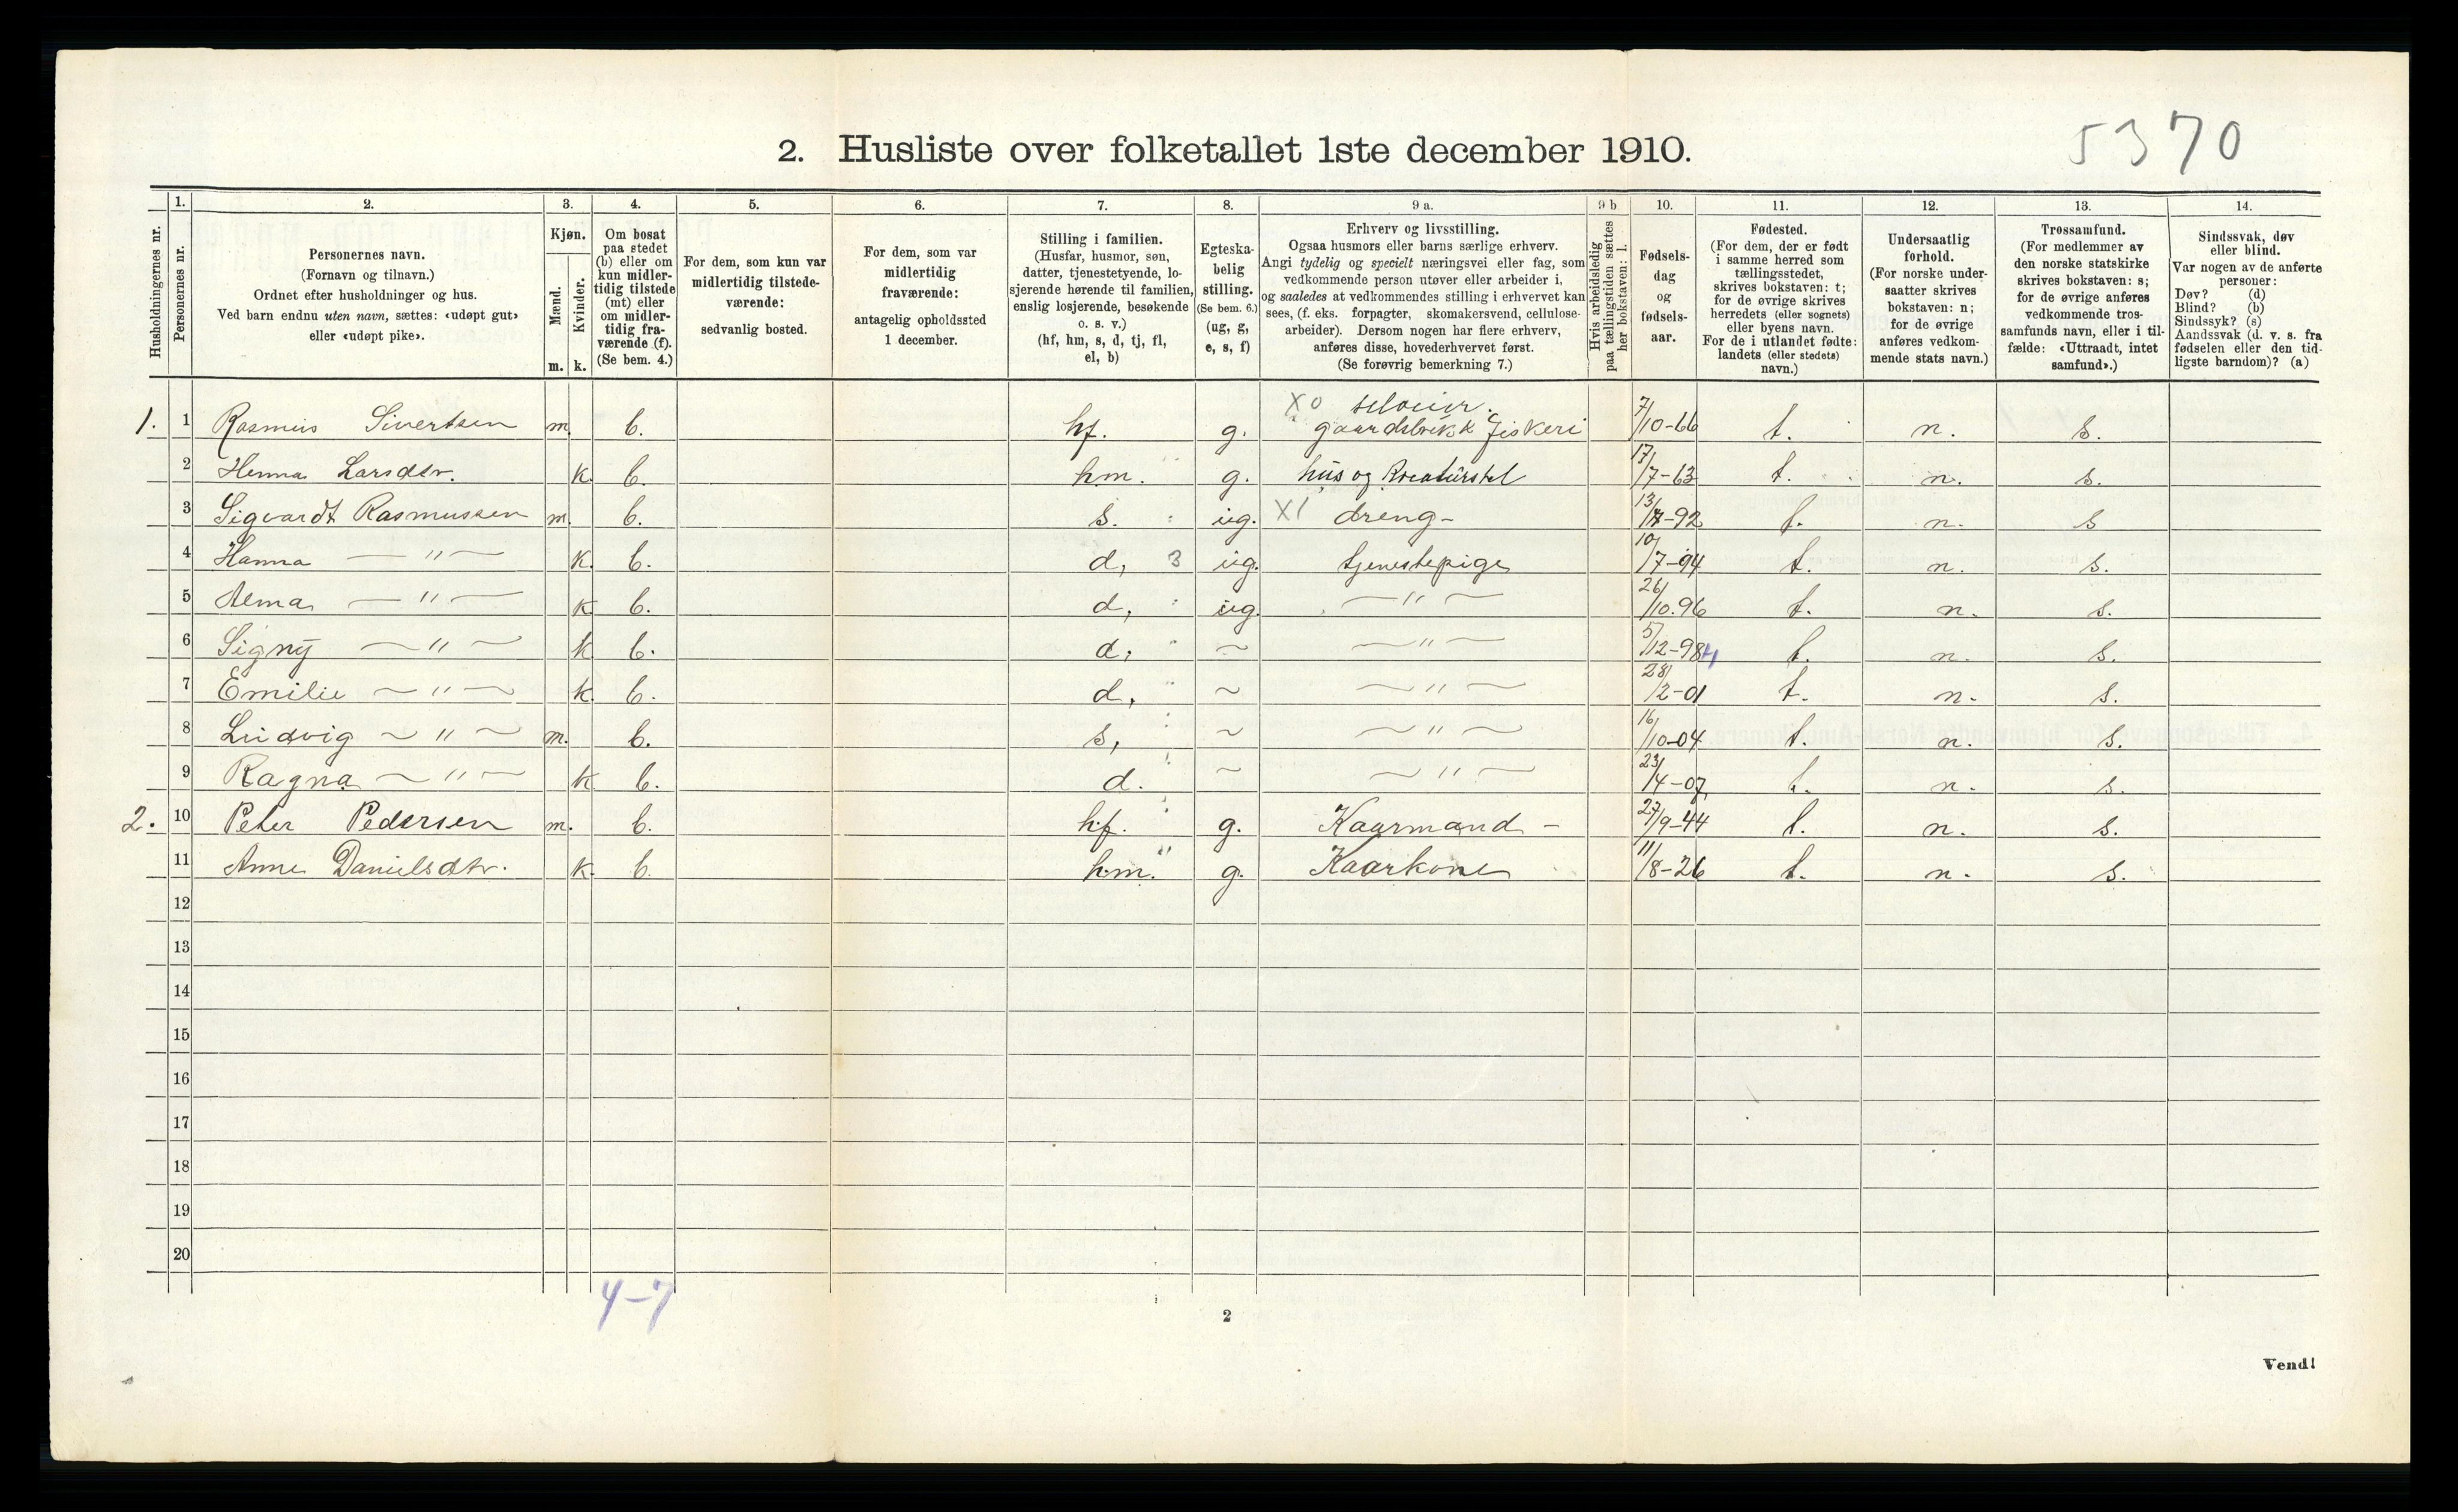 5370
2. Husliste over folketallet 1ste december 1910.
Husholdningernes nr.
1.
Personernes nr.
2.
Personernes navn.
(Fornavn og tilnavn.)
Ordnet efter husholdninger og hus.
Ved barn endnu uten navn, sættes: «udøpt gut»
eller «udøpt pike».
3.
Kjøn.
Mænd.
Kvinder.
m. k.
4.
Om bosat
paa stedet
(b) eller om
kun midler-
tidig tilstede
(mt) eller
om midler-
tidig fra-
værende (f).
(Se bem. 4.)
5.
For dem, som kun var
midlertidig tilstede-
værende:
sedvanlig bosted.
6.
For dem, som var
midlertidig
fraværende:
antagelig opholdssted
1 december.
7.
Stilling i familien.
(Husfar, husmor, søn,
datter, tjenestetyende, lo-
sjerende hørende til familien,
enslig losjerende, besøkende
o. s. v.)
(hf, hm, s, d, tj, fl,
el, b)
8.
Egteska-
belig
stilling.
(Se bem. 6.)
(ug, g,
e, s, f)
9 a.
Erhverv og livsstilling.
Ogsaa husmors eller barns særlige erhverv.
Angi tydelig og specielt næringsvei eller fag, som
vedkommende person utøver eller arbeider i,
og saaledes at vedkommendes stilling i erhvervet kan
sees, (f. eks. forpagter, skomakersvend, cellulose-
arbeider). Dersom nogen har flere erhverv,
anføres disse, hovederhvervet først.
(Se forøvrig bemerkning 7.)
9 b
Hvis arbeidsledig
paa tællingstiden sættes
her bokstaven: l.
10.
Fødsels-
dag
og
fødsels-
aar.
11.
Fødested.
(For dem, der er født
i samme herred som
tællingsstedet,
skrives bokstaven: t;
for de øvrige skrives
herredets (eller sognets)
eller byens navn.
For de i utlandet fødte:
landets (eller stedets)
navn.)
12.
Undersaatlig
forhold.
(For norske under-
saatter skrives
bokstaven: n;
for de øvrige
anføres vedkom-
mende stats navn.)
13.
Trossamfund.
(For medlemmer av
den norske statskirke
skrives bokstaven: s;
for de øvrige anføres
vedkommende tros-
samfunds navn, eller i til-
fælde: «Uttraadt, intet
samfund».)
14.
Sindssvak, døv
eller blind.
Var nogen av de anførte
personer:
Døv? (d)
Blind? (b)
Sindssyk? (s)
Aandssvak (d. v. s. fra
fødselen eller den tid-
ligste barndom)? (a)
1. 1 Rasmus Sivertsen m. b. hf. g. X0 selveier. gaardsbruk & fiskeri 7/10-66 t. n. s.
2 Larsdtr. k. b. hm. g. hus og Kreaturstel 17/7-63 t. n. s.
3 Sigvardt Rasmussen m. b. s. ug. X1 dreng - 13/ -92 t. n. s
4 Hanna — " — k. b. d, 3 ug. tjenestepige 10/7-94 t. n. s.
5 Alma — " — k. b. d, ug. — " — 26/10.96 t. n. s.
6 Signy — " — k b. d, ~ — " — 5/12-98 t. n. s.
7 Emilie — " — k. b. d, ~ — " — 28/2-01 t. n. s.
8 Ludvig ~ " ~ m. b. s, ~ — " — 16/10-04 t. n. s.
9 Ragna — " — k b. d. ~ — " — 23/4-07 t. n. s.
2. 10 Peter Pedersen m. b. hf. g. Kaarmand - 27/9-44 t. n. s.
11 Anne Danielsdtr. k. b. hm. g. Kaarkone 11/8-26 t. n. s.
12
13
14
15
16
17
18
19
20
4-7
2
Vend!